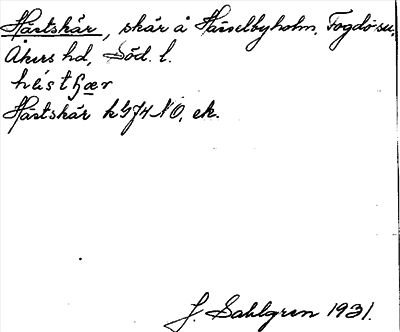 Hästskär, skär å Hässelbyholm, Fogdö sn,
Åkers hd, Söd. l.
Hästskär kG74 NO, ek.
J. Sahlgren 1931.